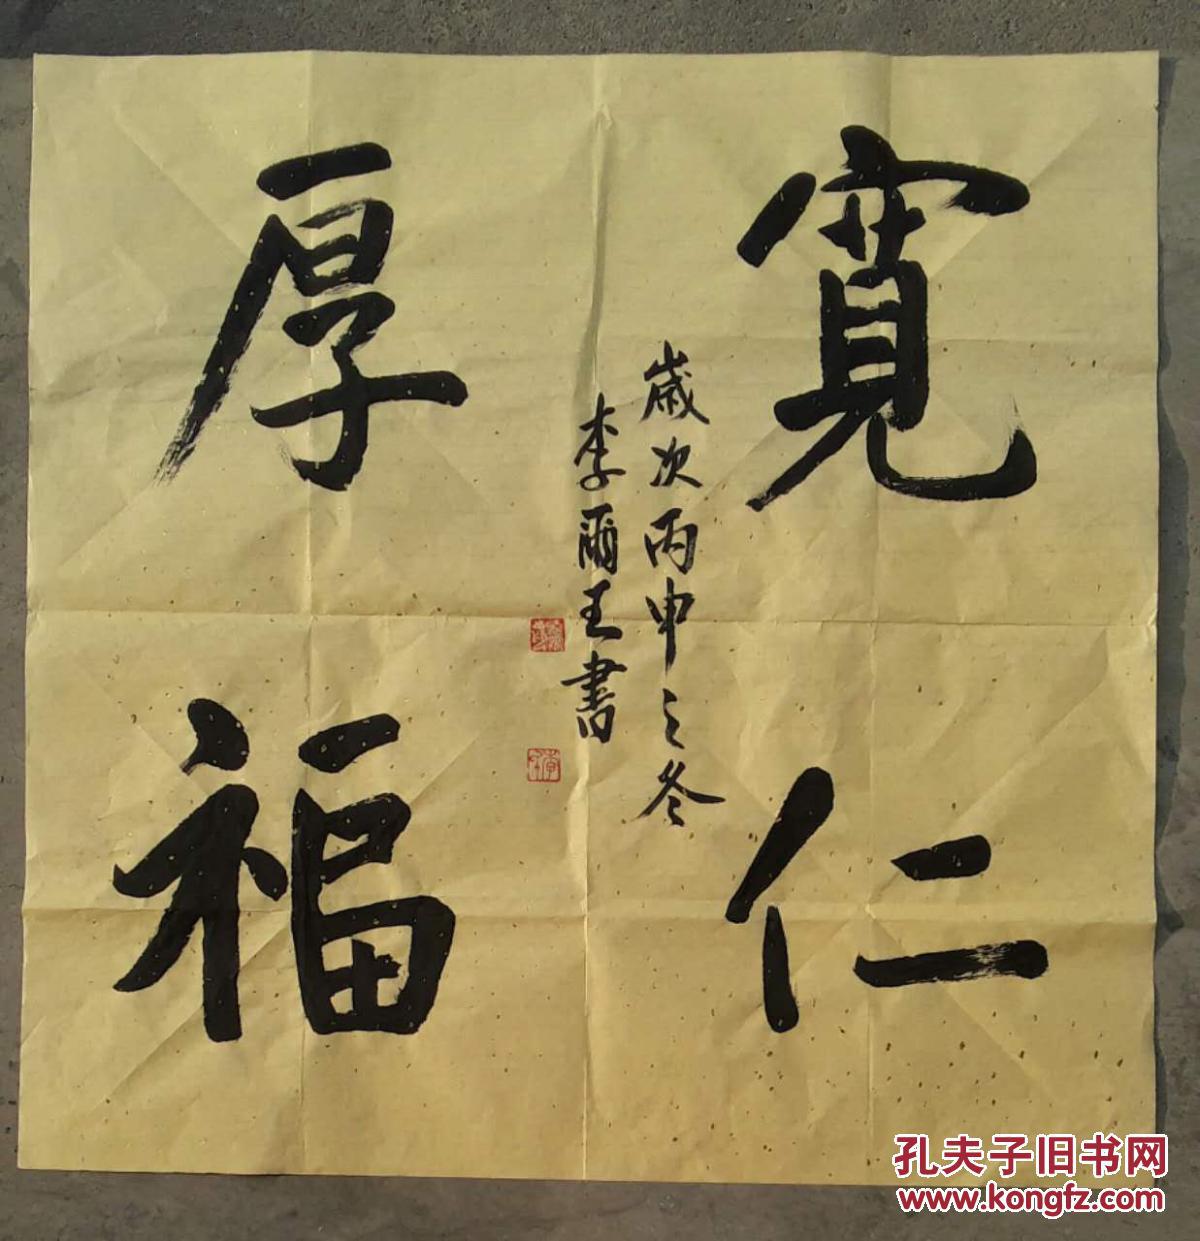 寬仁
厚福
歲次丙申之冬
李爾王書
孔夫子旧书网
www.kongfz.com